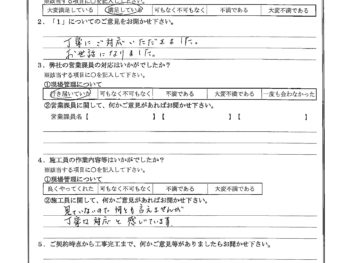 ※該当する項目に○を記入して下さい。
大変満足している 満足している 可も不可も無い 不満である 大変不満である
2．「1」についてのご意見をお聞かせ下さい。
丁寧にご対応いただきました。
お世話になりました。
3．弊社の営業課員の対応はいかがでしたか？
※該当する項目に○を記入して下さい。
①現場管理について
行き届いていた 可もなく不可もなく 不満である 大変不満である 一度も会わなかった
②営業課員に関して、何かご意見があればお聞かせ下さい。
営業課員名【 】【 】【 】
4．施工員の作業内容等はいかがでしたか？
※該当する項目に○を記入して下さい。
①現場管理について
良くやってくれた 可もなく不可もなく 不満である 大変不満である
②施工員に関して、何かご意見があればお聞かせ下さい。
見ていないので何とも言えませんが
丁寧な対応と感じています
5．ご契約時点から工事完工まで、何かご意見等がありましたらお聞かせ下さい。